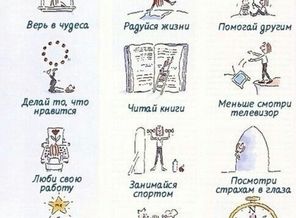 Верь в чудеса
Радуйся жизни
Помогай другим
Делай то, что
нравится
Читай книги
Меньше смотри
телевизор
Люби свою
работу
Занимайся
спортом
Посмотри
страхам в глаза